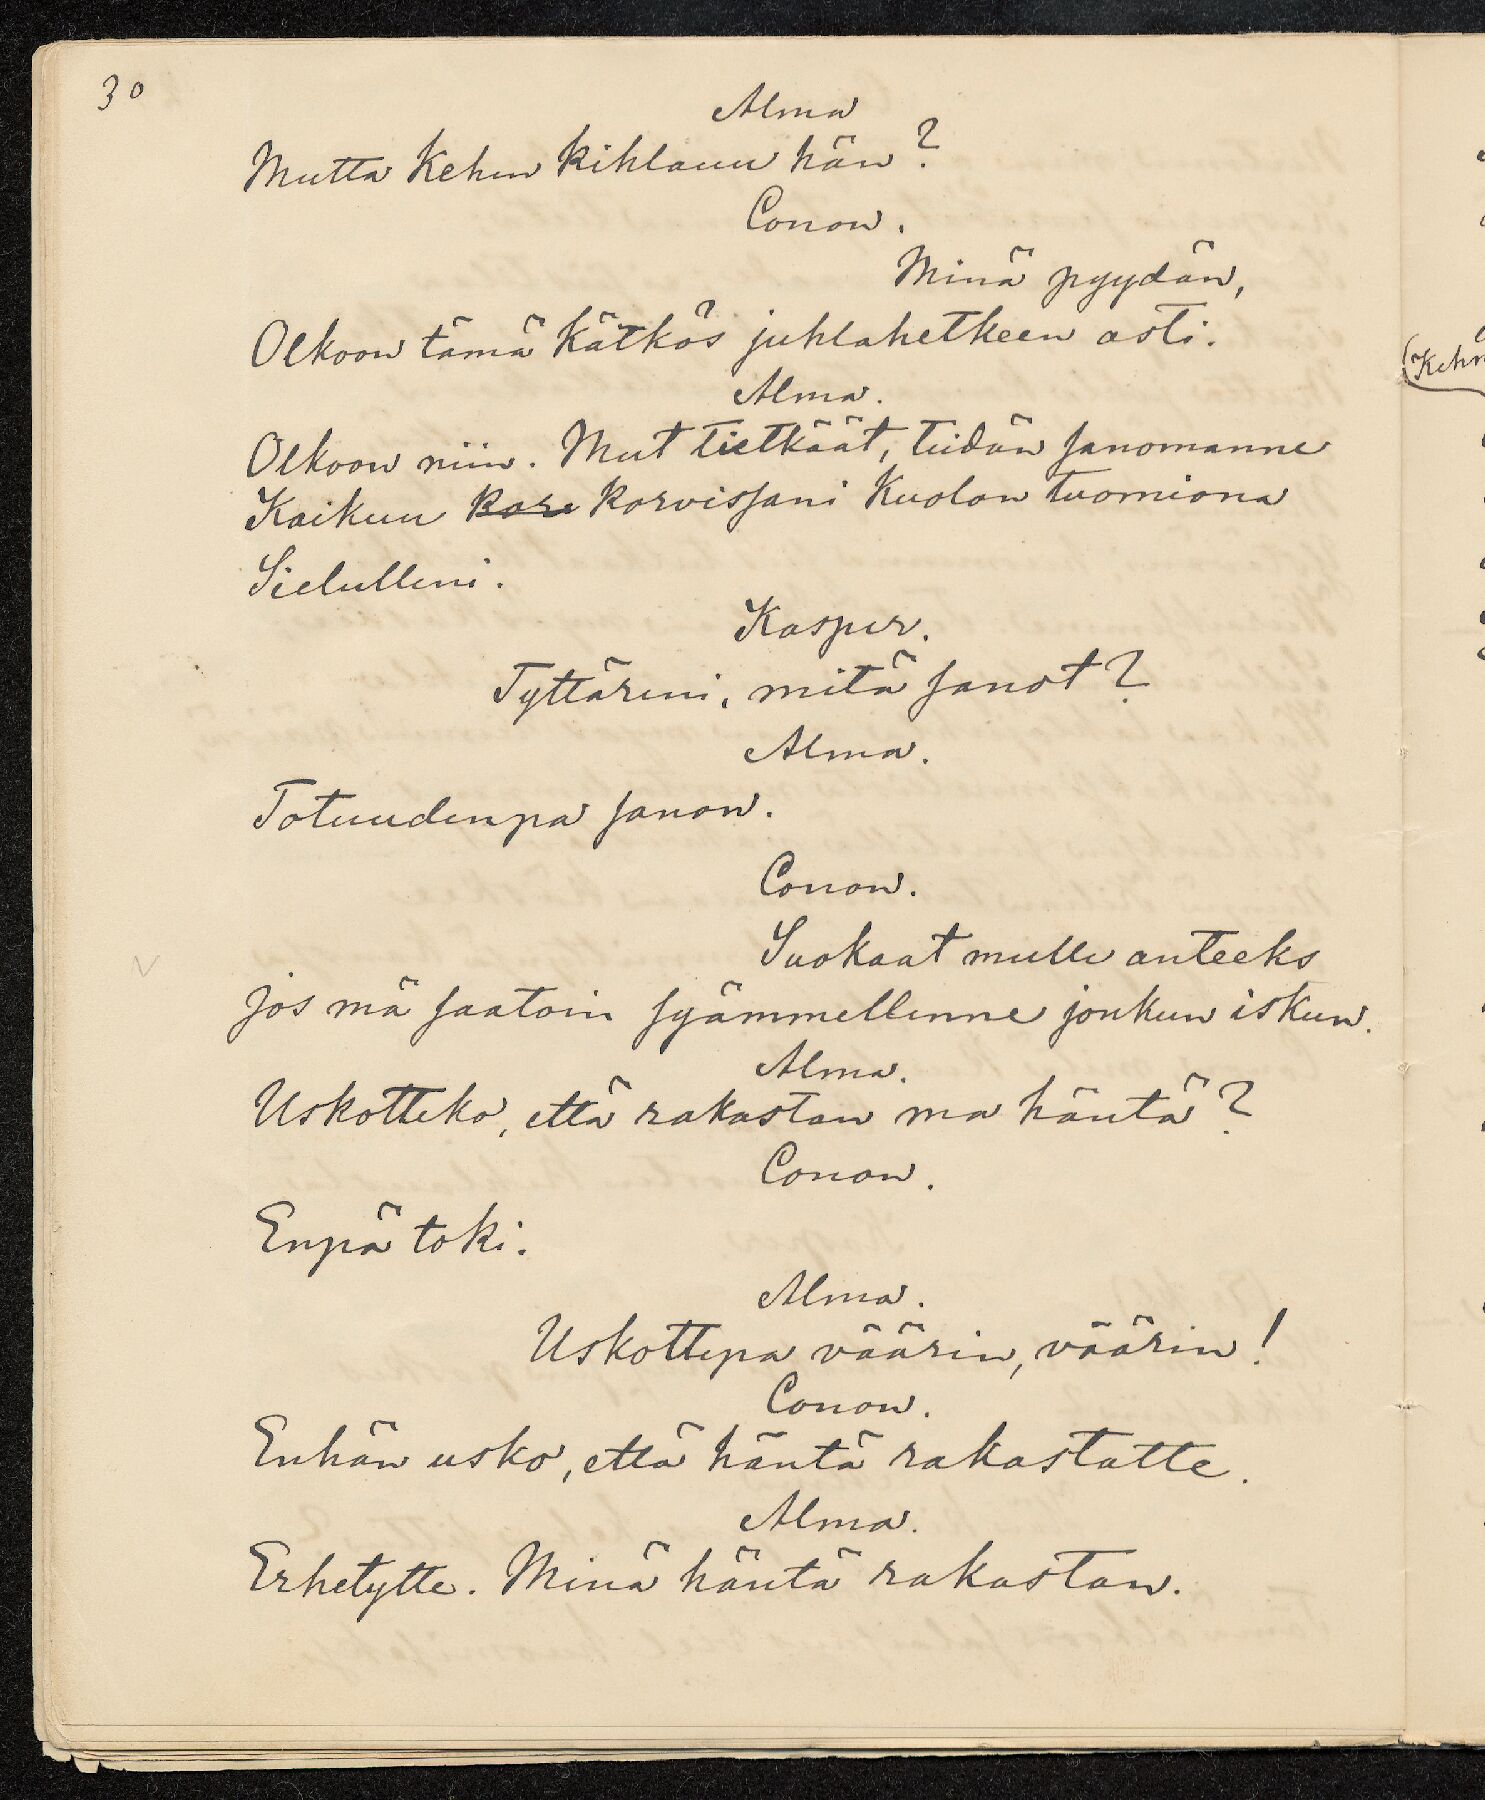 30
Alma
Mutta kehen kihlauu hän?
Conon.
Minä pyydän,
Olkoon tämä kätkös juhlahetkeen asti.
Alma.
Olkoon niin. Mut tietkäät, teidän sanomanne
Kaikuu kors korvissani kuolon tuomiona
Sielulleni.
Kasper.
Tyttäreni, mitä sanot?
Alma.
Totuudenpa sanon.
Conon.
Suokaat mulle anteeks
jos mä saatoin syämmellenne jonkun iskun.
Alma.
Uskotteko, että rakastan ma häntä?
Conon.
Enpä toki.
Alma.
Uskottepa väärin, väärin!
Conon.
Enhän usko, että häntä rakastatte.
Alma.
Erhetytte. Minä häntä rakastan.